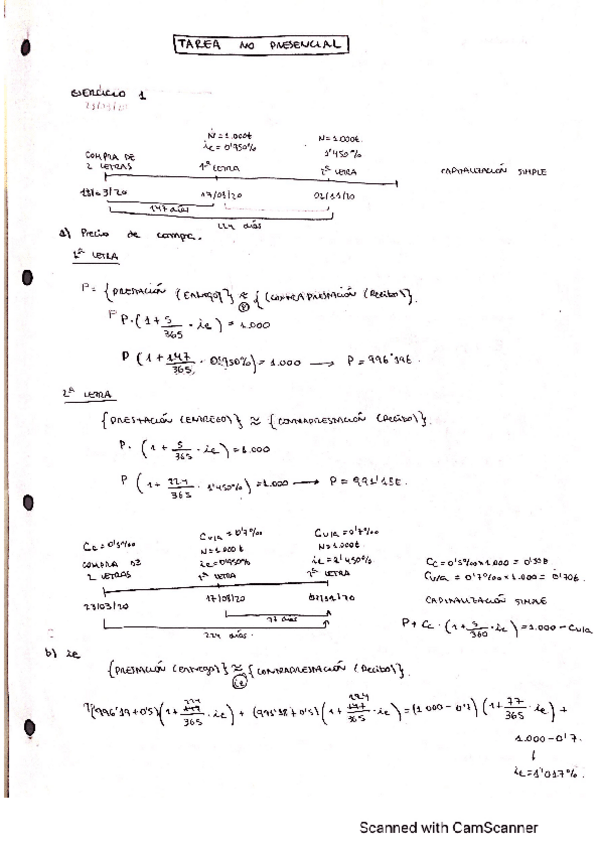 TAREA NO PRESENCIAL
EJERCICIO 1
23/03/20
N=1.000€
ie=0'950%
N=1.000€
1'450%
COMPRA DE
2 LETRAS
1ª LETRA
2ª LETRA
CAPITALIZACIÓN SIMPLE
17/08/20
02/11/20
147 días
224 días
a) Precio de compra.
1ª LETRA
P= {PRESTACIÓN (ENTREGO)} ≈ {(CONTRAPRESTACIÓN (Recibo)}.
P·(1+ s/365 · ie) = 1.000
P (1+ 147/365 · 0'950%) = 1.000 → P = 996'19€.
2ª LETRA
{PRESTACIÓN (ENTREGO)} ≈ {CONTRAPRESTACIÓN (Recibo)}.
P· (1+ s/365 · ie) = 1.000
P (1+ 224/365 · 1'450%) = 1.000 → P = 991'18€.
Cc=0'5‰
Cv/a=0'7‰
Cv/a=0'7‰
N=1.000€
N=1.000€
COMPRA DE
2 LETRAS
ie=0'950%
1ª LETRA
2ª LETRA
Cc=0'5‰×1.000 = 0'50€
Cv/a = 0'7‰×1.000 = 0'70€.
CAPITALIZACIÓN SIMPLE
23/03/20
17/08/20
02/11/20
77 días
224 días.
P+Cc·(1+ s/360 ·ie)=1.000-Cv/a
b) ie
{PRESTACIÓN (entrego)} ≈ {CONTRAPRESTACIÓN (Recibo)}.
ie
(996'19+0'5)(1+ 224/365 · ie) + (991'18+0'5)(1+ 224/365 · ie) = (1.000-0'7) (1+ 77/365 · ie) +
1.000-0'7.
↓
ie=1'017%.
Scanned with CamScanner